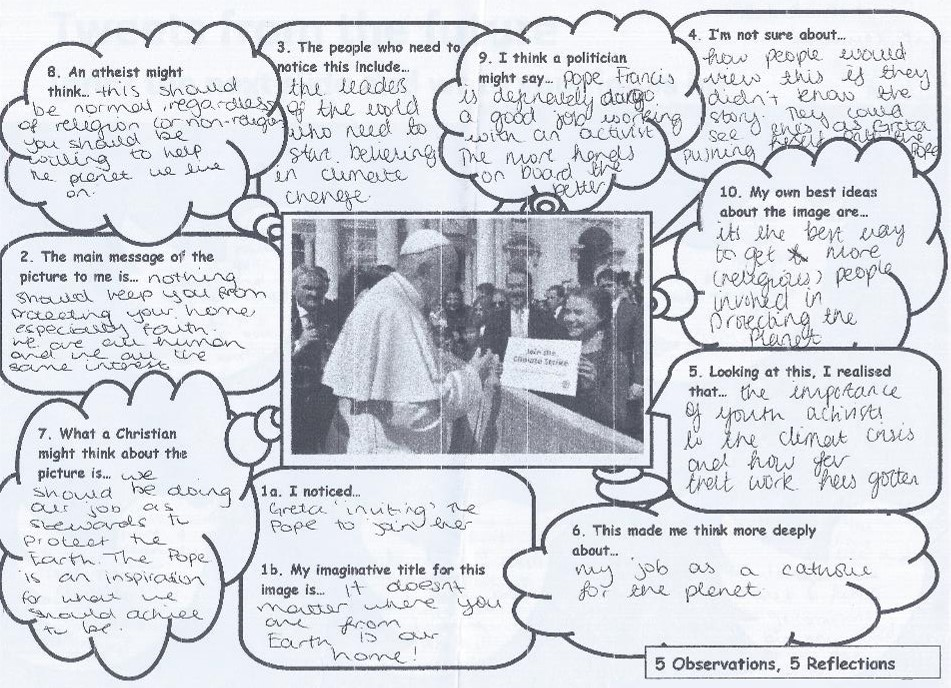 8. An atheist might
think... this should
be normal, regardless
of religion (or non-religion)
you should be
willing to help
the planet we live
on.
3. The people who need to
notice this include...
the leaders
of the world
who need to
start believing
in climate
change.
9. I think a politician
might say... Pope Francis
is definitely doing
a good job working
with an activist
The more hands
on board the
better
4. I'm not sure about...
how people would
view this if they
didn't know the
story. They could
see this as Greta
pushing herself onto the
Pope
10. My own best ideas
about the image are...
its the best way
to get more
(religious) people
involved in
protecting the
Planet
2. The main message of the
picture to me is... nothing
should keep you from
protecting your home
especially faith.
we are all human
and we all live
same interest
Join the
Climate Strike
5. Looking at this, I realised
that... the importance
of youth activists
to the climat crisis
and how far
their work has gotten
7. What a Christian
might think about the
picture is... we
should be doing
our job as
stewards to
protect the
Earth. The Pope
is an inspiration
for what we
should achieve
to be.
1a. I noticed...
Greta 'inviting' the
Pope to join her
1b. My imaginative title for this
image is... It doesnt
matter where you
are from
Earth is our
home!
6. This made me think more deeply
about...
my job as a catholic
for the planet.
5 Observations, 5 Reflections